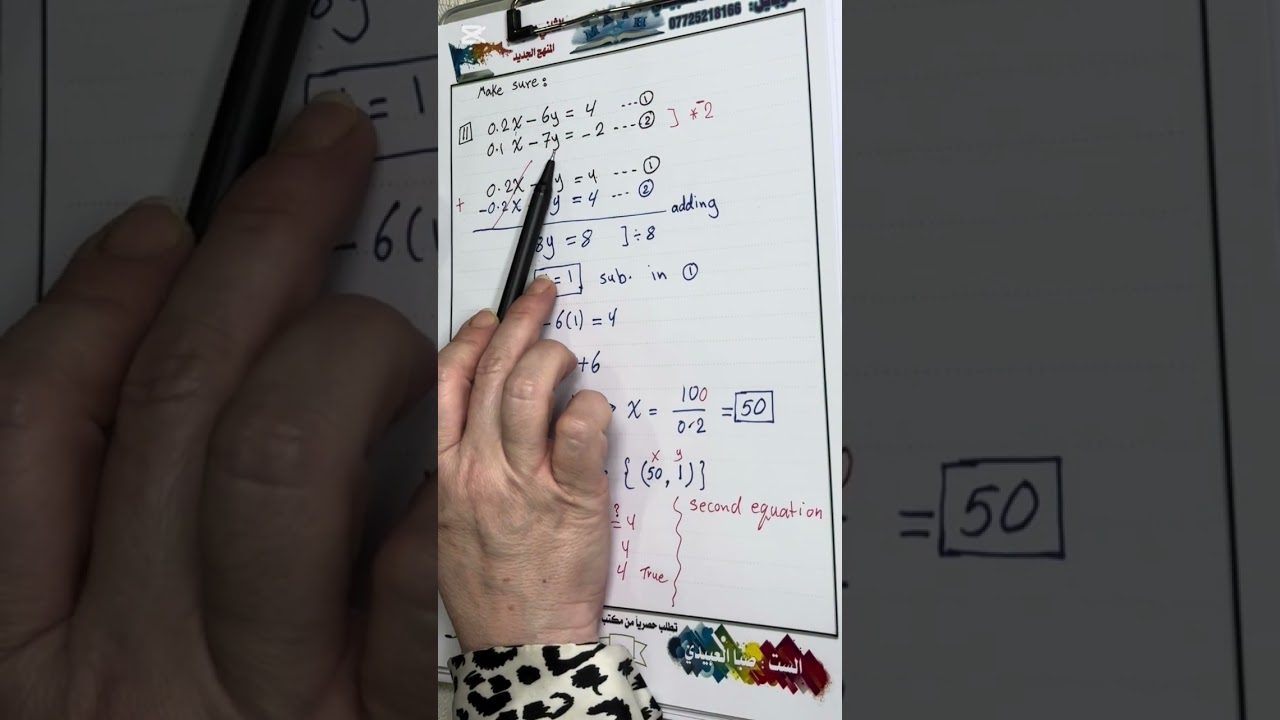 07725218166
المنهج الجديد
Make sure:
11 0.2x - 6y = 4 --- ①
0.1x - 7y = -2 --- ② ] *-2
0.2x - y = 4 --- ①
+ -0.2x y = 4 --- ②
adding
8y = 8 ] ÷ 8
= 1 sub. in ①
- 6(1) = 4
+6
x = 100/0.2 = 50
x y
{(50, 1)}
≟ 4 second equation
4
4 True
تطلب حصرياً من مكتب
الست : صبا العبيدي